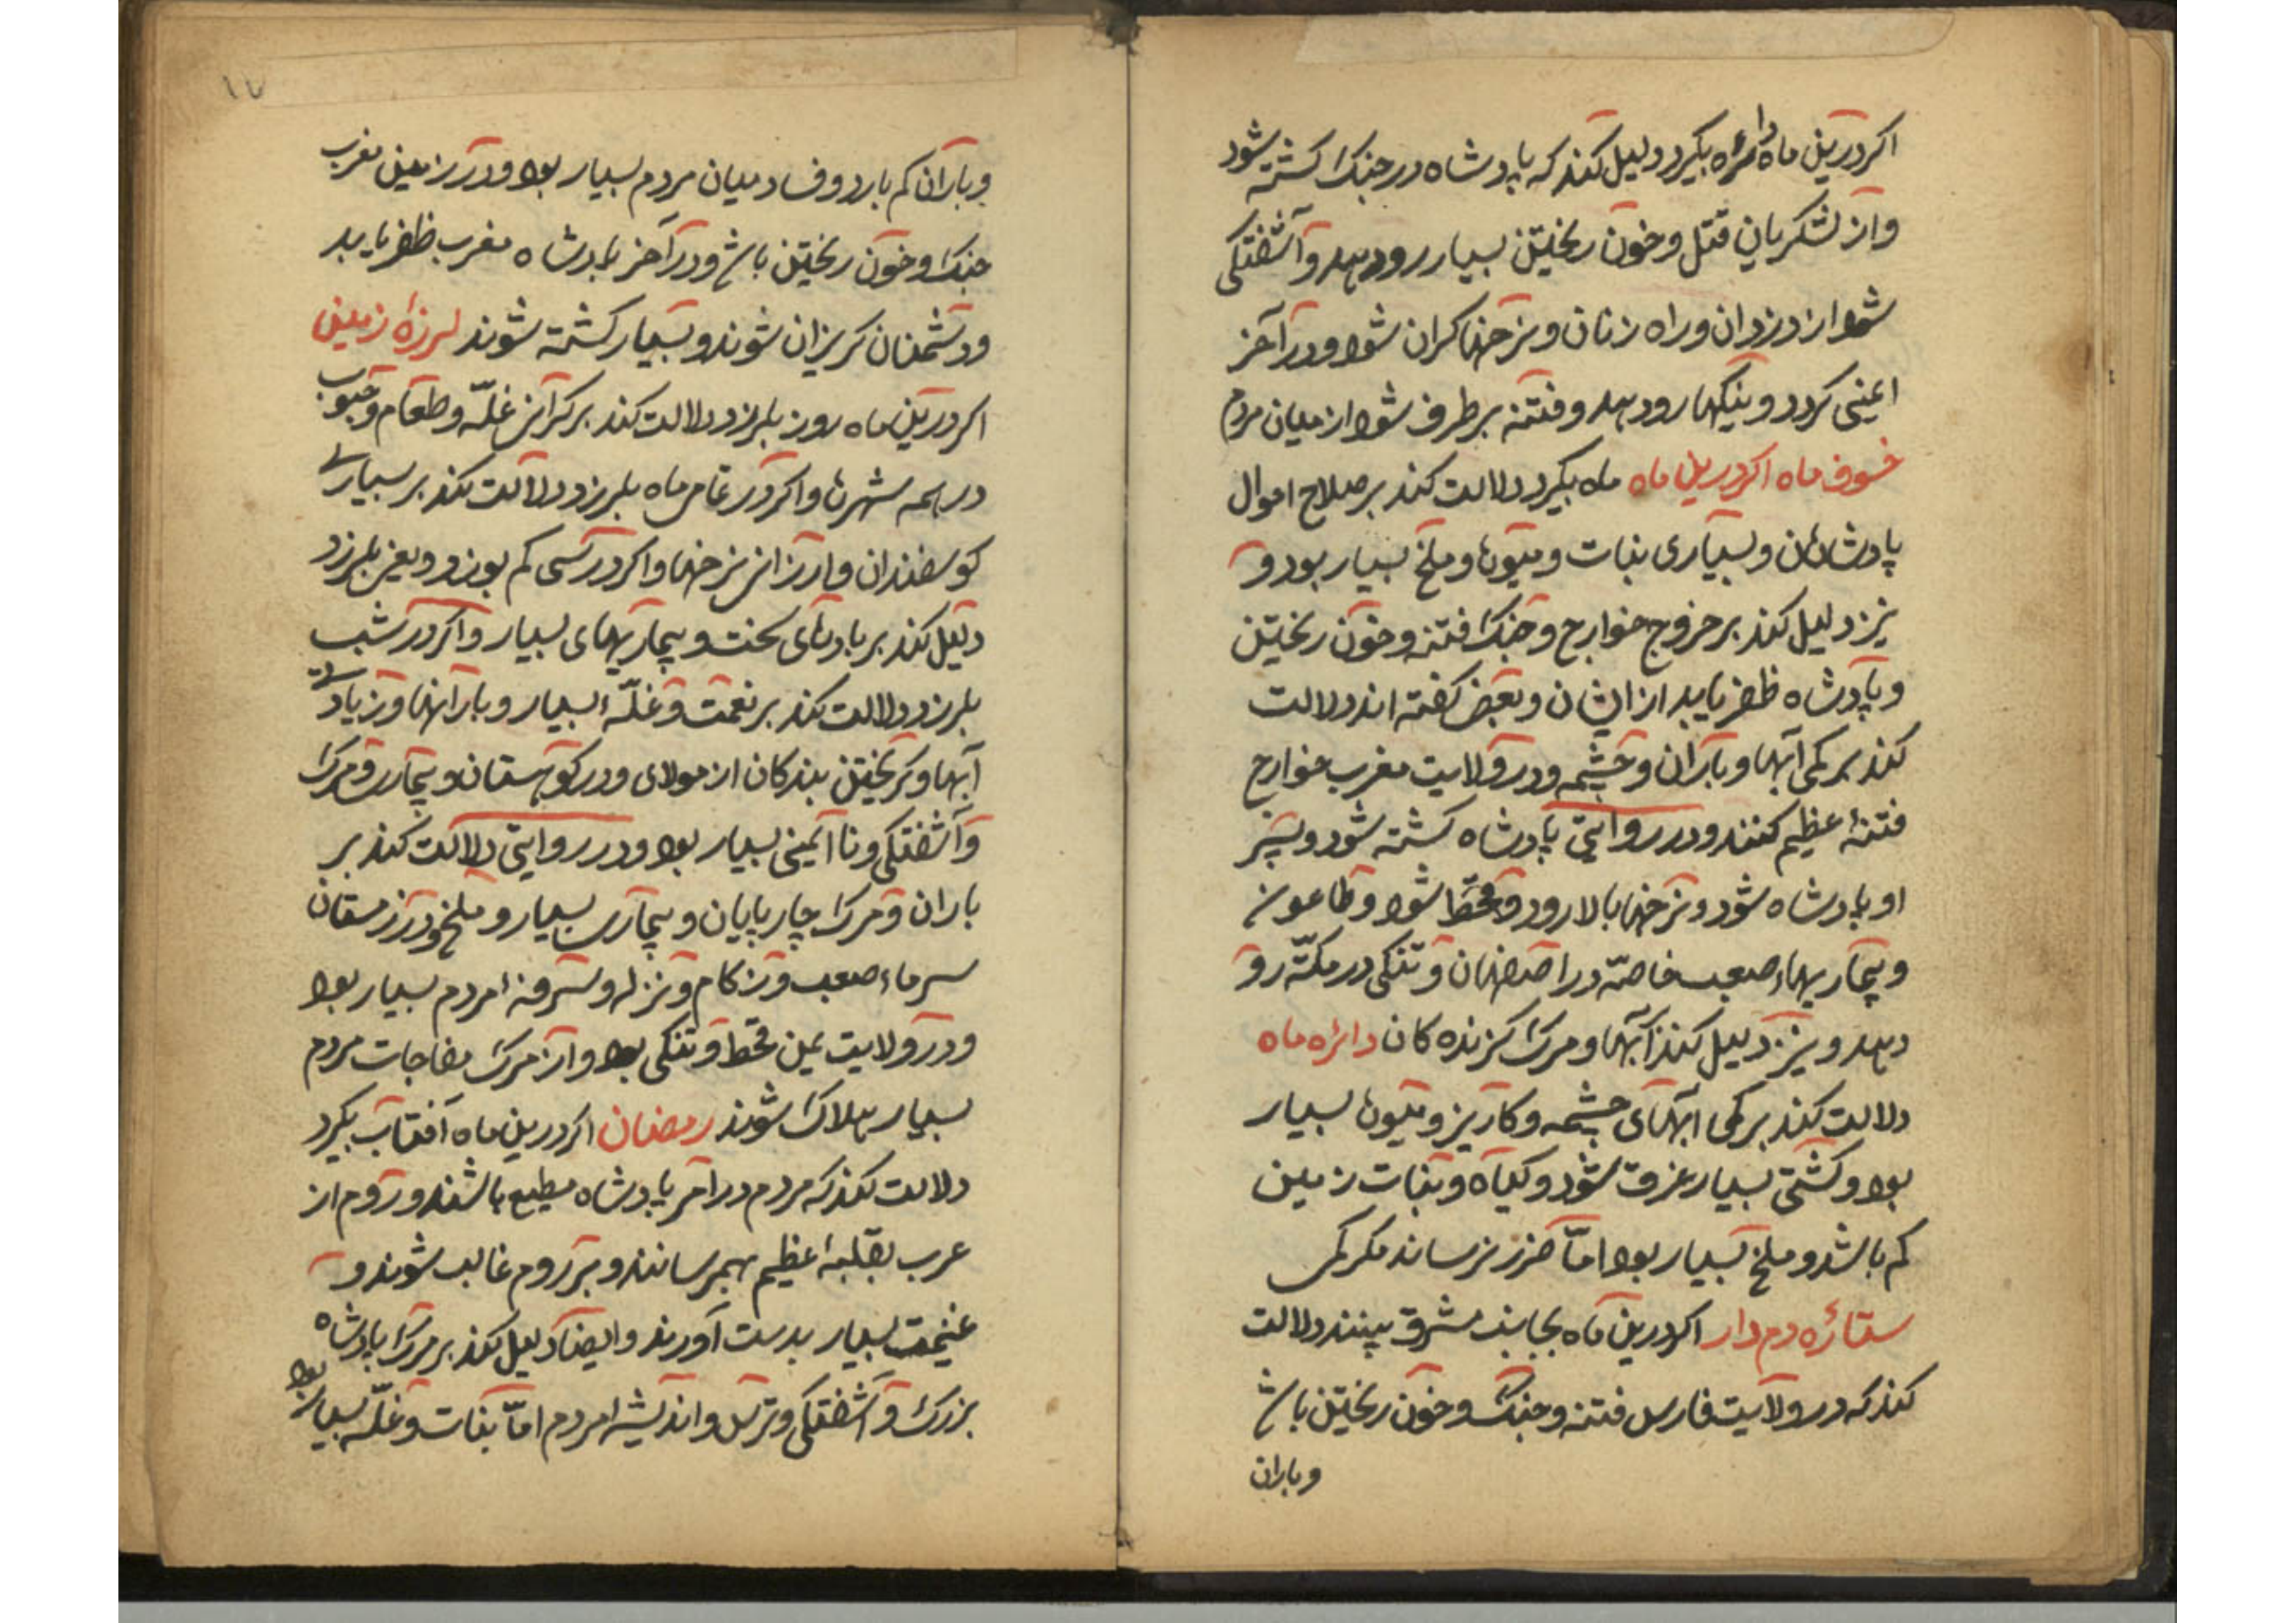 اکر درین ماه دائره بکیرد دلیل کند که پادشاه در جنک کشته شود
واز لشکریان قتل وخون ریختن بسیار رو دهد وآشفتکی
شود از دزدان وراه زنان ونرخها کران شود ودر آخر
ایمنی کردد ونیکیها رو دهد وفتنه برطرف شود از میان مردم
خسوف ماه اکر درین ماه ماه بکیرد دلالت کند بر صلاح احوال
پادشاهان وبسیاری نبات ومیوها وملخ بسیار بود و
نیز دلیل کند بر خروج خوارج وجنک فتنه وخون ریختن
وپادشاه ظفر یابد از ایشان وبعضی کفته اند دلالت
کند بر کمی آبها وباران وچشمه ودر ولایت مغرب خوارج
فتنهٔ عظیم کنند ودر روایتی پادشاه کشته شود وپسر
او پادشاه شود ونرخها بالا رود وقحط شود وطاعون
وبیماریهاء صعب خاصّه در اصفهان وتنکی در مکّه رو
دهد ونیز دلیل کند آبها ومرک کزنده کان دائره ماه
دلالت کند بر کمی ابهای چشمه وکاریز ومیوها بسیار
بود وکشتی بسیار غرق شود وکیاه ونبات زمین
کم باشد وملخ بسیار بود امّا ضرر نرساند مکر کمی
ستاره دم دار اکر درین ماه بجانب مشرق بینند دلالت
کند که در ولایت فارس فتنه وجنک وخون ریختن باش
وباران
١٧
وباران کم بارد وفساد میان مردم بسیار بود ودر زمین مغرب
جنک وخون ریختن باش ودر آخر پادشاه مغرب ظفر یابد
ودشمنان کریزان شوند وبسیار کشته شوند لرزهٔ زمین
اکر درین ماه روز بلرزد دلالت کند بر کرانی غلّه وطعام وحبوب
در همه شهرها واکر در تمامی ماه بلرزد دلالت کند بر بسیاری
کوسفندان وارزانی نرخها واکر در کم بوزد بلرزد
دلیل کند بر بادهای سخت وبیماریهای بسیار واکر در شب
بلرزد دلالت کند بر نعمت وغلّه بسیار وبارانها وزیادتی
آبها وکریختن بندکان از مولای ودر کوهستان وبیماری ومرک
وآشفتکی ونا ایمنی بسیار بود ودر روایتی دلالت کند بر
باران ومرک چارپایان وبیماری بسیار وملخ ودر زمستان
سرماء صعب وزکام ونزله وسرفه مردم بسیار بود
ودر ولایت یمن قحط وتنکی بود واز مرک مفاجات مردم
بسیار هلاک شوند رمضان اکر درین ماه آفتاب بکیرد
دلالت کند که مردم در امر پادشاه مطیع باشند وروم از
عرب عظیم بهمرسانند وبر روم غالب شوند و
غنیمت بسیار بدست آورند وایضا دلیل کند بر مرک پادشاه
بزرک وآشفتکی وترس واندیشه مردم امّا نبات وغلّه بسیار بود